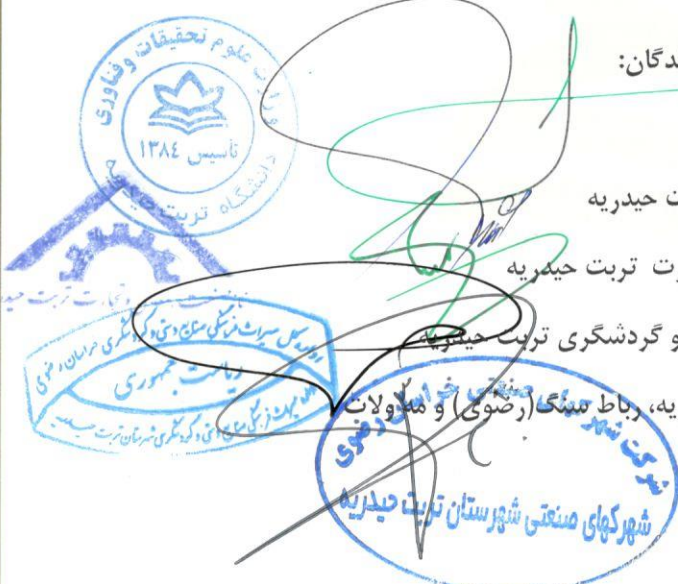 دگان:
ت حیدریه
رت تربت حیدریه
و گردشگری تربت حیدریه
یه، رباط سنگ(رضوی) و مه‌ولات
وزارت علوم تحقیقات و فناوری
تاسیس ۱۳۸٤
دانشگاه تربت حیدریه
و تجارت تربت حید
اداره کل میراث فرهنگی صنایع دستی و گردشگری خراسان رضوی
ریاست جمهوری
میراث فرهنگی صنایع دستی و گردشگری شهرستان تربت حیدریه
شرکت شهرکهای صنعتی خراسان رضوی
شهرکهای صنعتی شهرستان تربت حیدریه